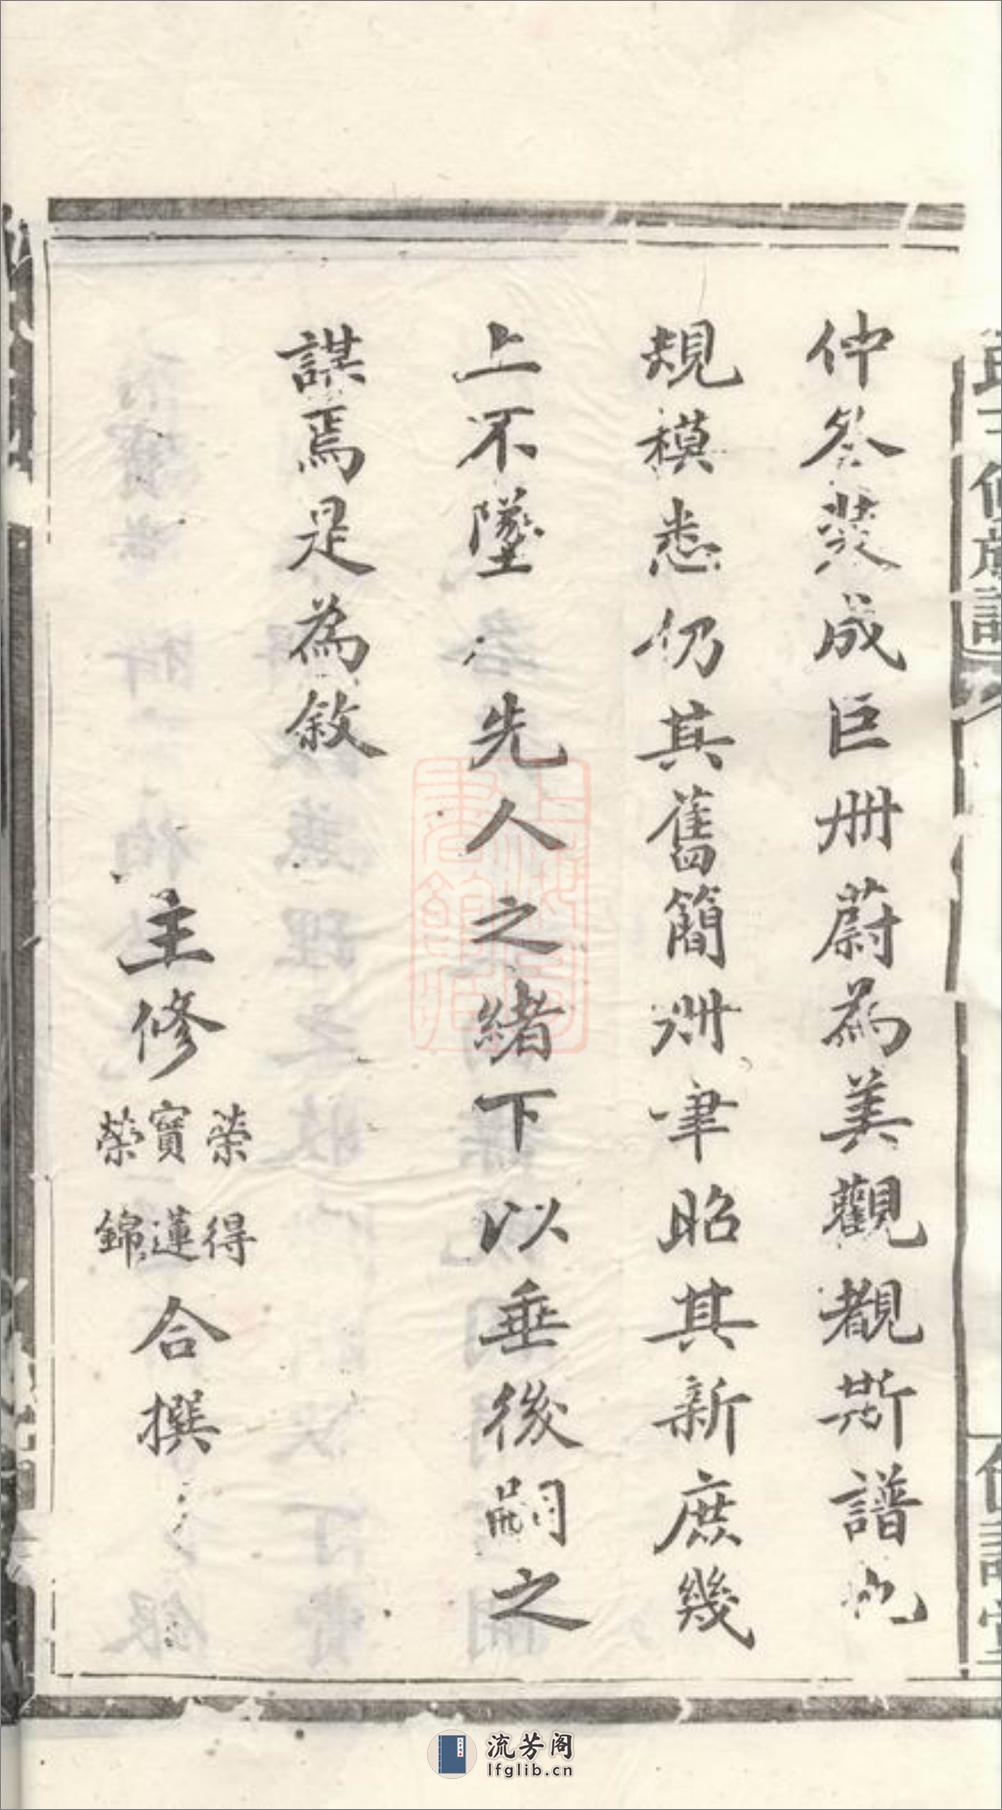 仲冬裝成巨冊蔚為美觀覩斯譜也
規模悉仍其舊簡冊聿昭其新庶幾
上不墜先人之緒下以垂後嗣之
謀焉是為敘
主修
榮得
寶蓮
榮錦
合撰
修族譜
流芳阁
lfglib.cn